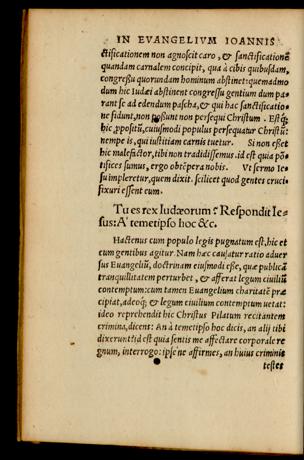 IN EVANGELIVM IOANNIS
ctificationem non agnoscit caro, & sanctificationē
quandam carnalem concipit, qua à cibis quibusdam,
congressu quorundam hominum abstinet: quemadmo
dum hic Iudæi abstinent congressu gentium dum pa-
rant se ad edendum pascha, & qui hac sanctificatio-
ne fidunt, non possunt persequi Christum. Estq́;
hic, ꝓpositū, cuiusmodi populus persequatur Christū:
nempe is, qui iustitiam carnis tuetur. Si non esset
hic malefactor, tibi non tradidissemus. id est quia põ-
tifices sumus, ergo obtēpera nobis. Vt sermo Ie-
su impleretur, quem dixit. scilicet quod gentes cruci-
fixuri essent eum.
Tu es rex Iudæorum? Respondit Ie-
sus: A' temetipso hoc &c.
Hactenus cum populo legis pugnatum est, hic et
cum gentibus agitur. Nam hæc causatur ratio aduer
sus Euangeliū, doctrinam eiusmodi esse, quæ publicā
tranquillitatem perturbet, & afferat legum ciuiliū
contemptum: cum tamen Euangelium charitatē præ
cipiat, adeoq́; & legum ciuilium contemptum uetat:
ideo reprehendit hic Christus Pilatum recitantem
crimina, dicens: An à temetipso hoc dicis, an alij tibi
dixerunt? id est quia sentis me affectare corporale re
gnum, interrogo: ipse'ne affirmes, an huius criminis
testes